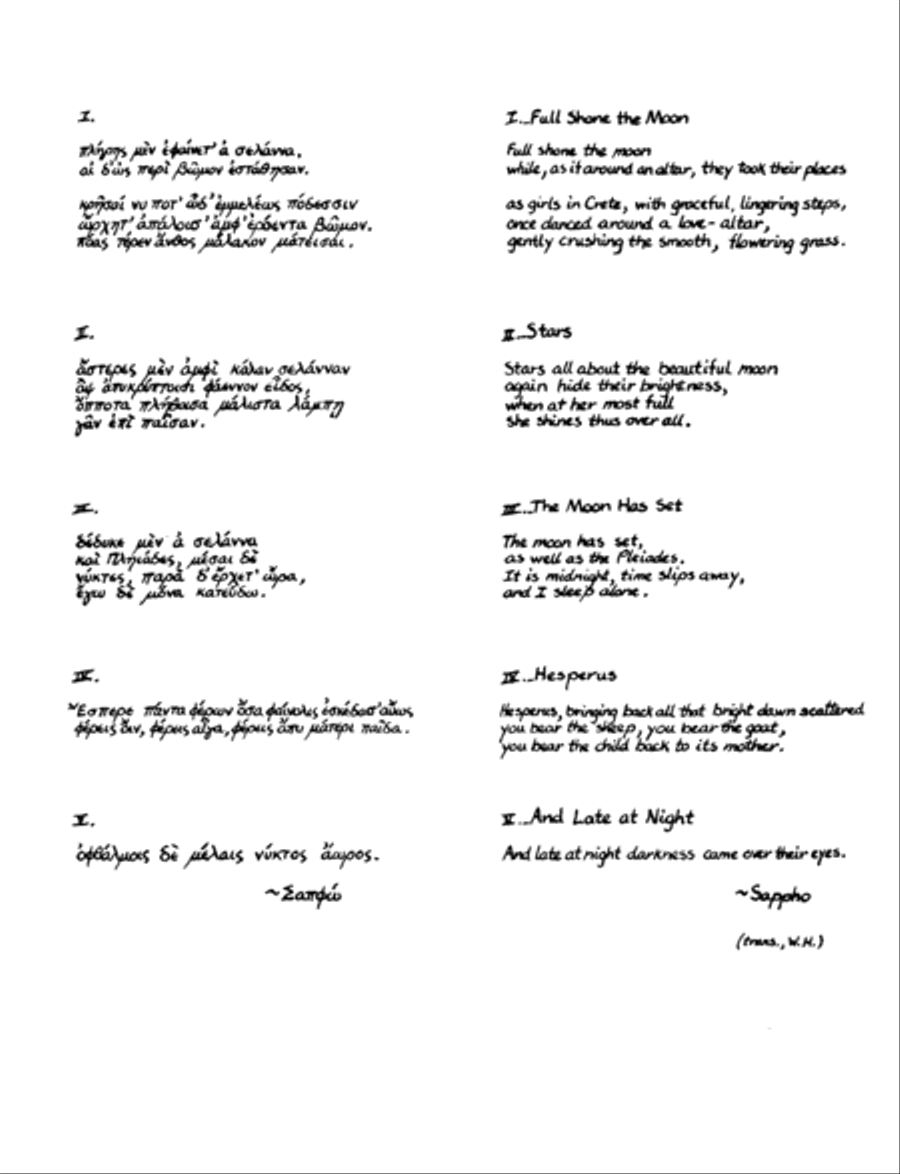 I.
πλήρης μὲν ἐφαίνετ' ἀ σελάννα,
αἰ δ'ὠς περὶ βῶμον ἐστάθησαν.
κρῆσσαί νυ ποτ' ὦδ' ἐμμελέως πόδεσσιν
ὤρχηντ' ἀπάλοισ' ἀμφ' ἐρόεντα βῶμον.
πόας τέρεν ἄνθος μάλακον μάτεισαι.
II.
ἄστερες μὲν ἀμφὶ κάλαν σελάνναν
ἂψ ἀπυκρύπτοισι φάεννον εἶδος,
ὄπποτα πλήθοισα μάλιστα λάμπῃ
γᾶν ἐπὶ παῖσαν.
III.
δέδυκε μὲν ἀ σελάννα
καὶ Πληιάδες, μέσαι δὲ
νύκτες, παρὰ δ'ἔρχετ' ὤρα,
ἔγω δὲ μόνα κατεύδω.
IV.
Ἔσπερε πάντα φέρων ὄσα φαίνολις ἐσκέδασ' αὔως
φέρεις ὄιν, φέρεις αἶγα, φέρεις ἄπυ μάτερι παῖδα.
V.
ὀφθάλμοις δὲ μέλαις νύκτος ἄωρος.
~Σαπφώ
I...Full Shone the Moon
Full shone the moon
while, as if around an altar, they took their places
as girls in Crete, with graceful, lingering steps,
once danced around a love-altar,
gently crushing the smooth, flowering grass.
II...Stars
Stars all about the beautiful moon
again hide their brightness,
when at her most full
she shines thus over all.
III...The Moon Has Set
The moon has set,
as well as the Pleiades.
It is midnight, time slips away,
and I sleep alone.
IV...Hesperus
Hesperus, bringing back all that bright dawn scattered
you bear the sheep, you bear the goat,
you bear the child back to its mother.
V...And Late at Night
And late at night darkness came over their eyes.
~Sappho
(trans., W.H.)